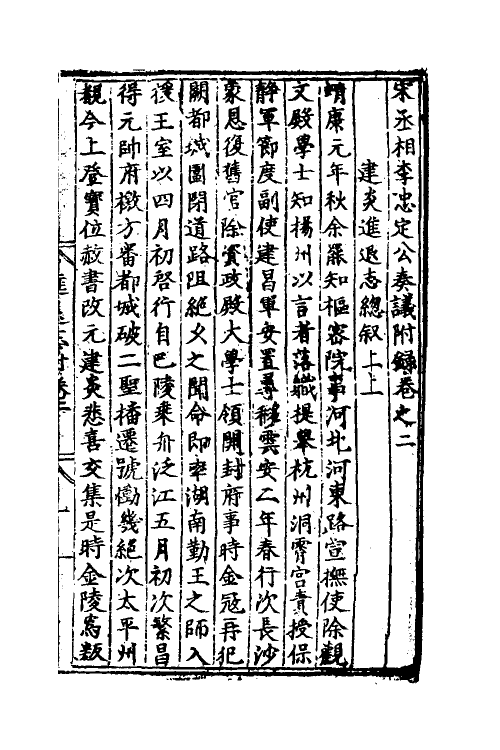 宋丞相李忠定公奏議附錄卷之二
建炎進退志總叙上上
靖康元年秋余罷知樞密院事河北河東路宣撫使除觀
文殿學士知揚州以言者落職提舉杭州洞霄宮責授保
靜軍節度副使建昌軍安置尋移雲安二年春行次長沙
蒙恩復舊官除資政殿大學士領開封府事時金冦再犯
闕都城圍閉道路阻絕乆之聞命即率湖南勤王之師入
援王室以四月初啓行自巴陵乘舟泛江五月初次繁昌
得元帥府檄方審都城破二聖播遷號慟幾絕次太平州
覩今上登寶位赦書改元建炎悲喜交集是時金陵爲叛